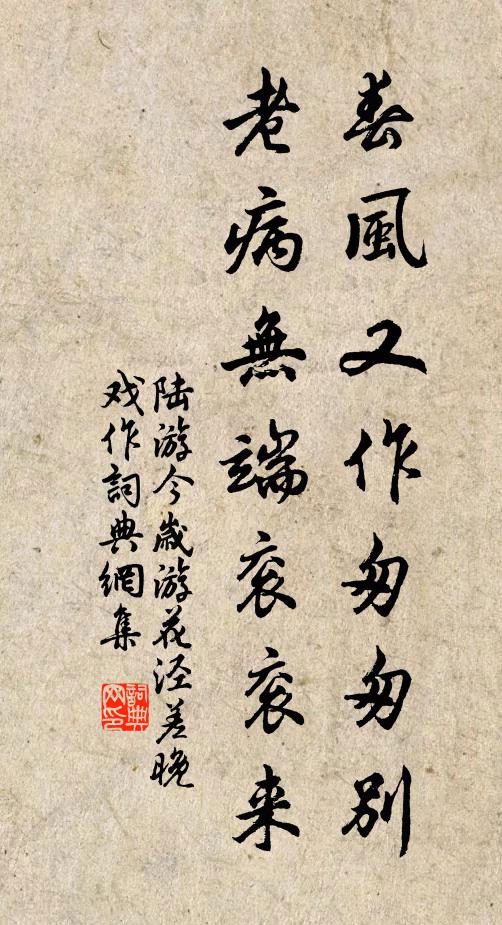 春風又作匆匆别
老病無端衮衮来
陆游今歲游花泾差晚
戏作詞典網集
詞典网印